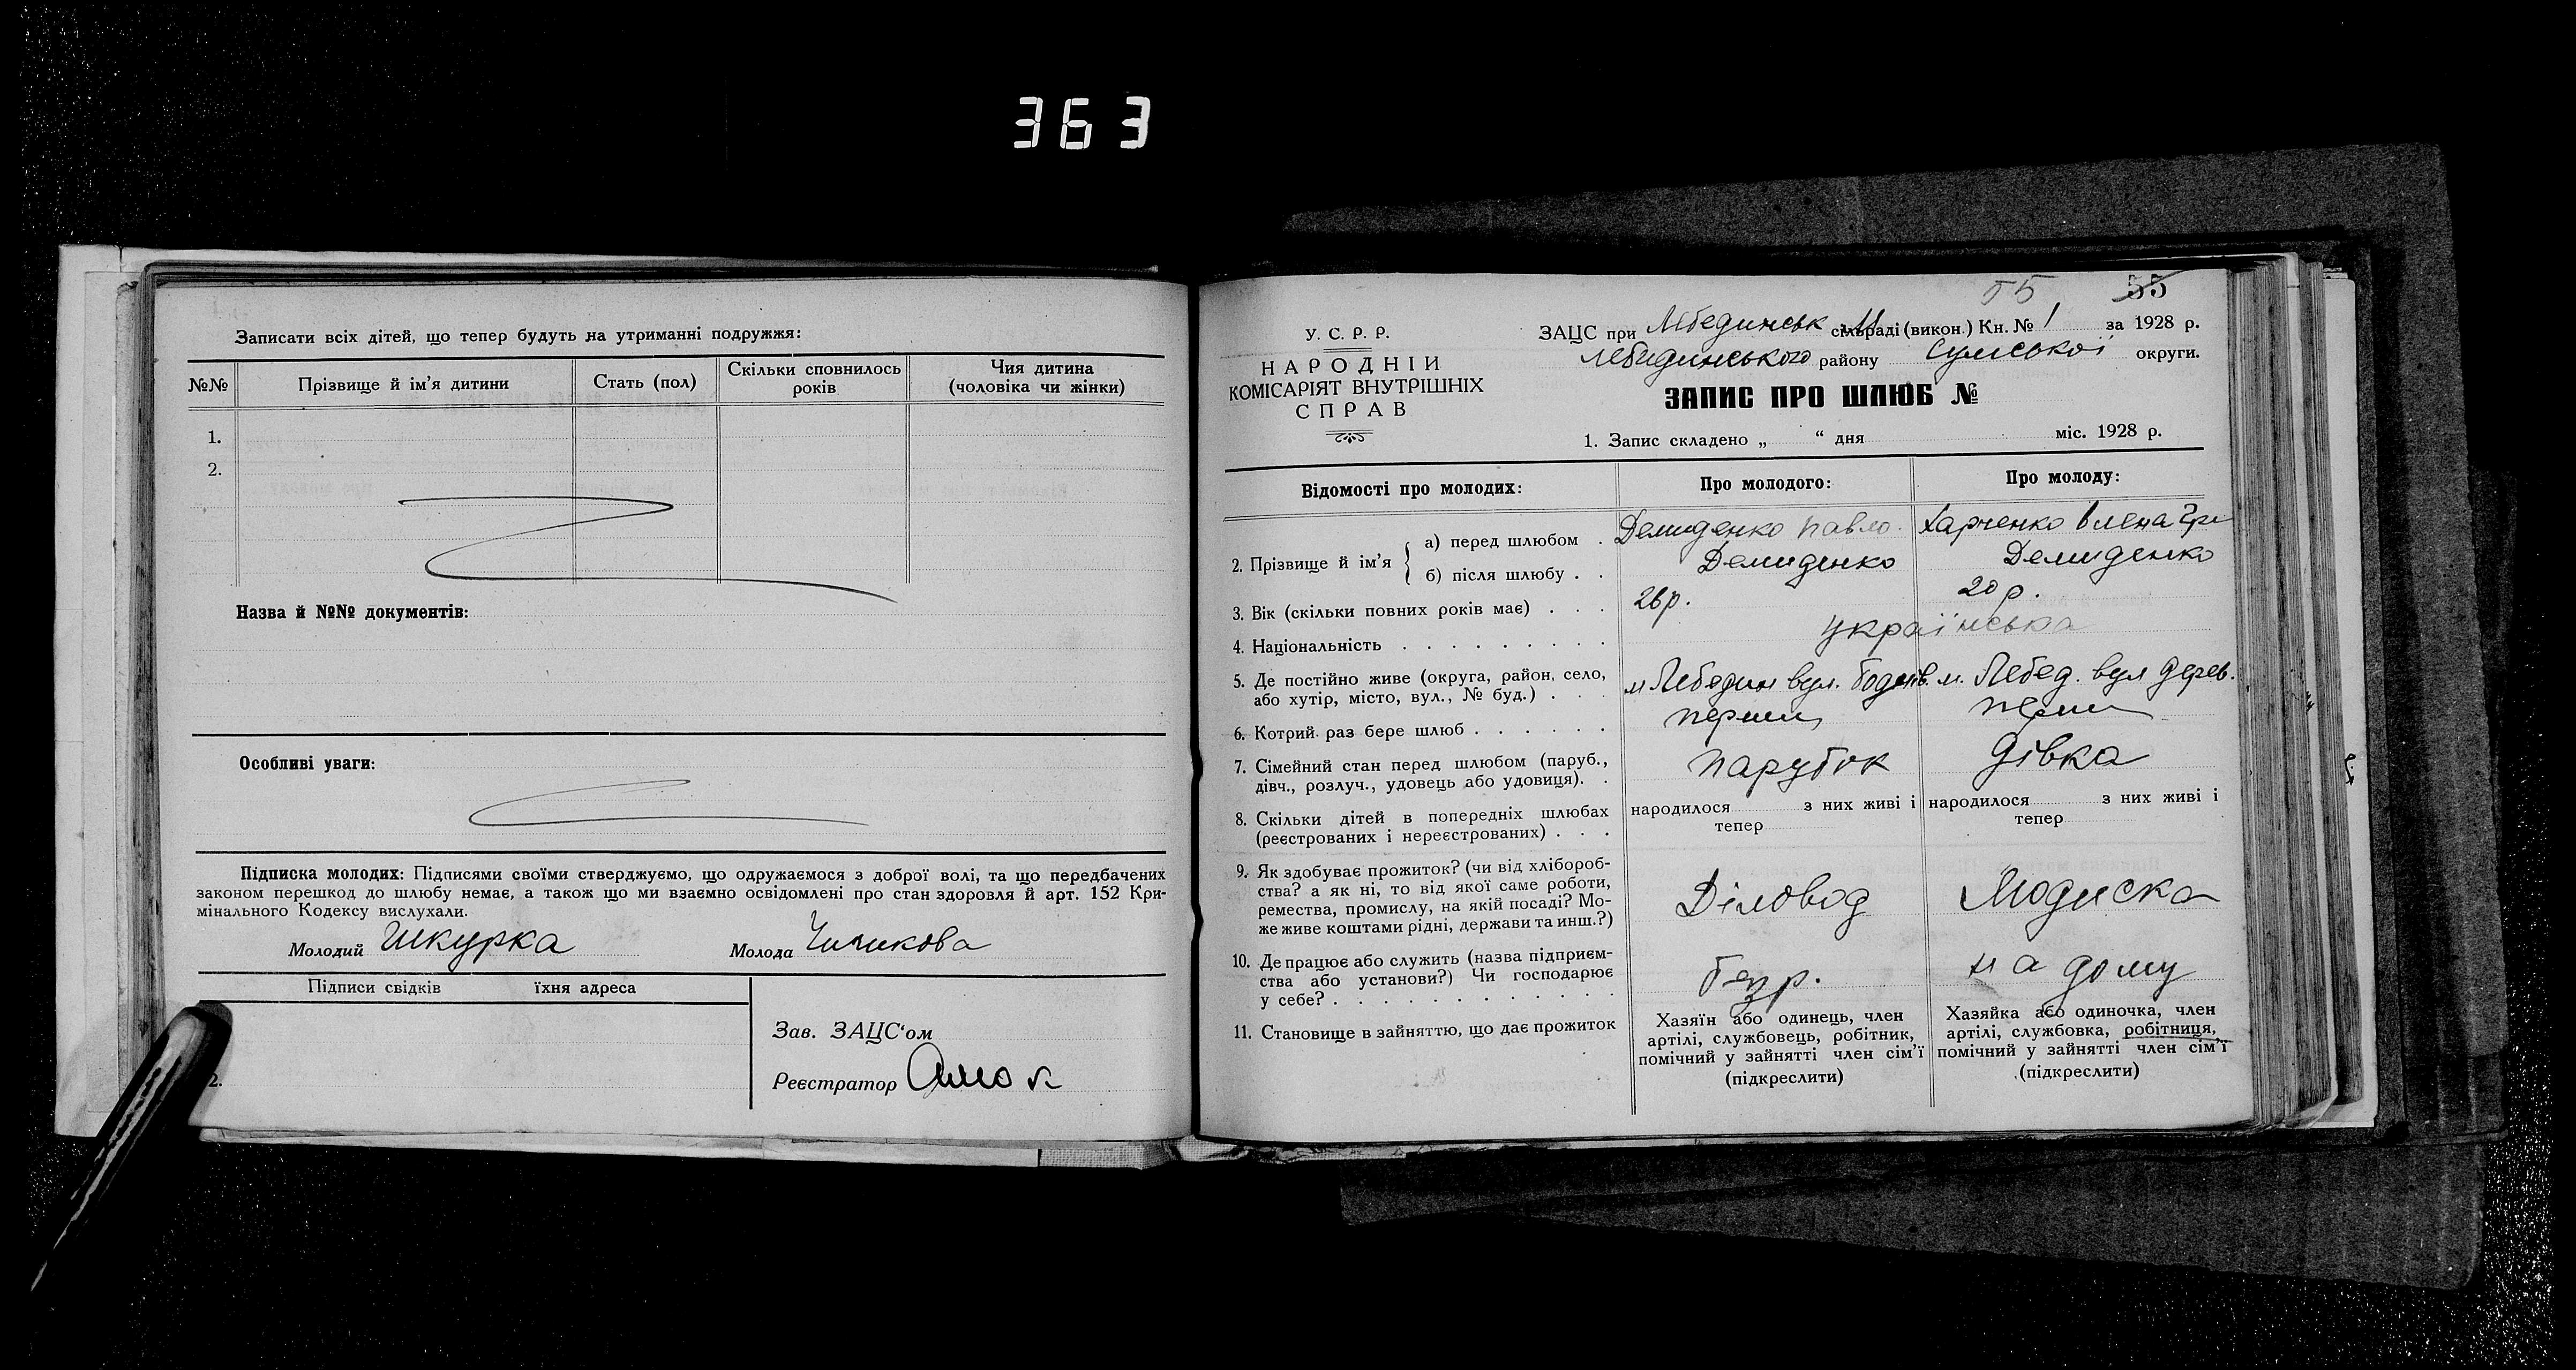 363
Записати всіх дітей, що тепер будуть на утриманні подружжя:
№№ Прізвище й ім'я дитини Стать (пол) Скільки сповнилось років Чия дитина (чоловіка чи жінки)
1.
2.
Назва й №№ документів:
Особливі уваги:
Підписка молодих: Підписями своїми стверджуємо, що одружаємося з доброї волі, та що передбачених
законом перешкод до шлюбу немає, а також що ми взаємно освідомлені про стан здоровля й арт. 152 Кри-
мінального Кодексу вислухали.
Молодий Шкурка Молода Чижикова
Підписи свідків їхня адреса
Зав. ЗАЦС'ом
2.
Реєстратор
55 55
У. С. Р. Р.
НАРОДНІЙ
КОМІСАРІЯТ ВНУТРІШНІХ
СПРАВ
ЗАЦС при Лебединськ сільраді (викон.) Кн. № 1 за 1928 р.
Лебединського району Сумської округи.
ЗАПИС ПРО ШЛЮБ №
1. Запис складено „ “ дня міс. 1928 р.
Відомості про молодих: Про молодого: Про молоду:
2. Прізвище й ім'я
а) перед шлюбом . Демиденко Павло. Харченко Олена Гри
б) після шлюбу . . Демиденко Демиденко
3. Вік (скільки повних років має) . . . 26 р. 20 р.
4. Національність . . . . . . . . . українська
5. Де постійно живе (округа, район, село,
або хутір, місто, вул., № буд.) . . . м Лебедин вул. м. Лебед. вул Дерев.
6. Котрий раз бере шлюб . . . . . . перший перш
7. Сімейний стан перед шлюбом (паруб.,
дівч., розлуч., удовець або удовиця). . парубок дівка
8. Скільки дітей в попередніх шлюбах
(реєстрованих і нереєстрованих) . . .
народилося з них живі і
тепер
народилося з них живі і
тепер
9. Як здобуває прожиток? (чи від хлібороб-
ства? а як ні, то від якої саме роботи,
ремества, промислу, на якій посаді? Мо-
же живе коштами рідні, держави та инш.?)
Діловод Модиска
10. Де працює або служить (назва підприєм-
ства або установи?) Чи господарює
у себе? . . . . . . . . . . . .
безр. на дому
11. Становище в зайняттю, що дає прожиток
Хазяїн або одинець, член
артілі, службовець, робітник,
помічний у зайнятті член сім'ї
(підкреслити)
Хазяйка або одиночка, член
артілі, службовка, робітниця,
помічний у зайнятті член сім'ї
(підкреслити)